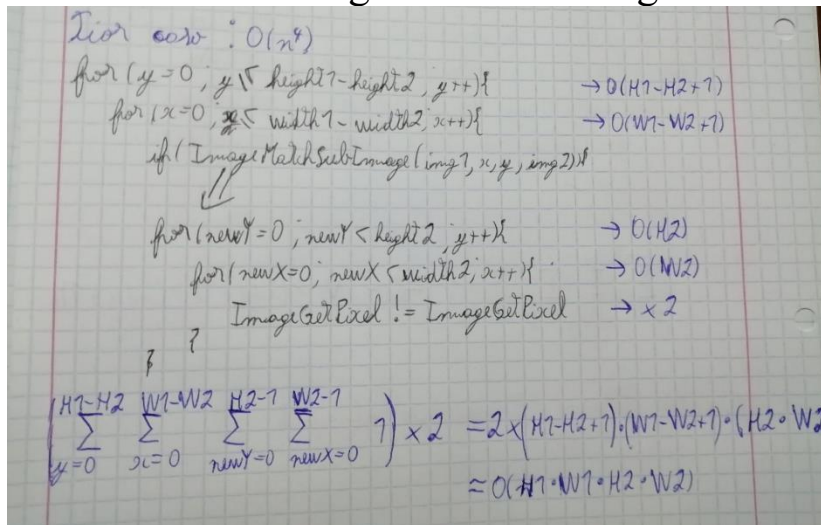 Pior caso : O(n⁴)
for (y=0; y≤ height1-height2, y++){ → O(H1-H2+1)
for (x=0; x≤ width1-width2; x++){ → O(W1-W2+1)
if( ImageMatchSubImage(img1, x, y, img2)){
for(newY=0; newY<height2; y++){ → O(H2)
for(newX=0; newX<width2; x++){ → O(W2)
ImageGetPixel != ImageGetPixel → ×2
}
}
(∑_{y=0}^{H1-H2} ∑_{x=0}^{W1-W2} ∑_{newY=0}^{H2-1} ∑_{newX=0}^{W2-1} 1) × 2 = 2×(H1-H2+1)·(W1-W2+1)·(H2·W2
≈ O(H1·W1·H2·W2)